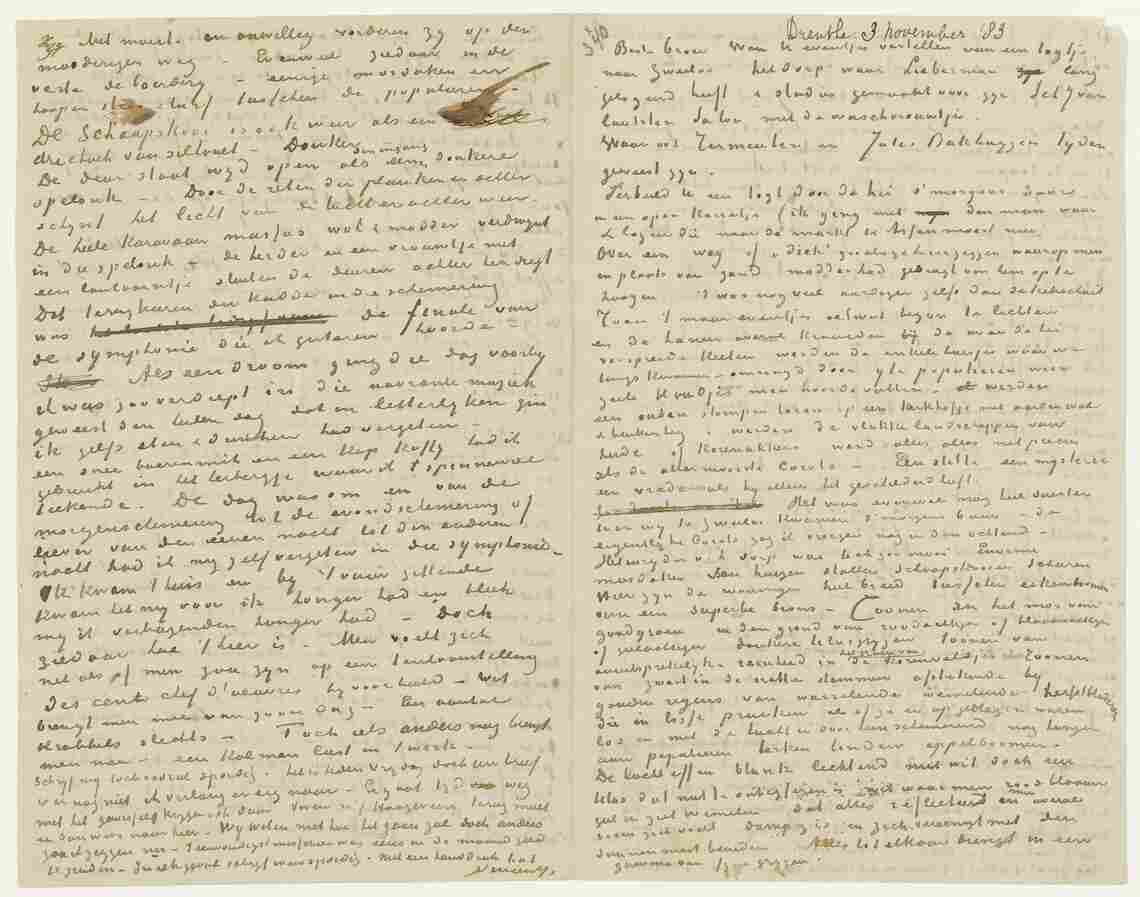 Met moed en onwillig vorderen zy op den
modderigen weg — Evenwel ziedaar in de
verte de boerdery — eenige mosdaken en
hoopen turf tusschen de populieren —
De Schaapskooi is ook weer als een
driehoek van silhouet — Donker
De deur staat wyd open als eene donkere
spelonk — Door de reten der planken er achter
schynt het licht van de lucht er achter weer.
De heele Karavaan massas wol & modder verdwynt
in die spelonk — de herder en een vrouwtje met
een lantaarntje sluiten de deuren achter
Dat terugkeeren der kudde in die schemering
was de finale van
de symphonie die ik gisteren hoorde —
Als een droom ging die dag voorby
ik was zoo verdiept in die navrante muziek
geweest den heelen dag dat ik letterlyk
ik zelfs eten & drinken had vergeten —
een snee boerenmik en een kop koffy had ik
gebruikt in het herbergje waar ik t spinnewiel
teekende. De dag was om en van de
morgenschemering tot de avondschemering of
liever van den eenen nacht tot den anderen
nacht had ik my zelf vergeten in die symphonie —
Ik kwam t huis en by 't vuur zittende
kwam het my voor ik honger had en bleek
my ik verbazenden honger had — Doch
ziedaar hoe 't hier is. Men voelt zich
net alsof men zou zyn op een tentoonstelling
des cent chef d'oeuvres by voorbeeld — wat
brengt men mee van zoo'n dag — Een aantal
krabbels slechts — Toch iets anders nog brengt
men mee — een kalmen lust in t werk —
Schryf my toch vooral spoedig. het is heden vrydag doch uw brief
is er nog niet ik verlang er erg naar —
Vincent.
Drenthe 3 november 83
Beste broer Moet U eventjes vertellen van een togtje
naar Zweeloo het dorp waar Lieberman lang
gelogeerd heeft & studies gemaakt voor zyn Schy van
laatsten salon met de waschvrouwtjes.
Waar ook Termeulen en Jules Bakhuyzen tyden
geweest zyn.
Verbeeld U een togt door de hei s'morgens
in een open Karretje (ik ging met den man waar
ik logeer die naar de markt te Assen moest mee
Over een weg of „diek" zooals ze hier zeggen waarop men
in plaats van zand modder had gebragt om hem op te
hoogen 't was nog veel aardiger zelfs dan de
Toen 't maar eventjes eerst begon te lichten
en de hanen overal Kraaiden by de over de hei
verspreide Hutten werden de enkele huisjes waar we
langs Kwamen — omringd door yle populieren wier
gele blaadjes men hoorde vallen — werden
een ouden stompen toren op een kerkhofje met aardenwal
& beukenheg, werden de vlakke landschappen van
heide of Korenakkers werd alles, alles net precies
als de allermooiste Corots — Een stilte een mysterie
een vrede als hy alleen het geschilderd heeft.
Het was evenwel nog heel duister
toen wy te Zweeloo Kwamen 's morgens 6 uur — de
eigentlyke Corots zag ik vroeger nog in den ochtend —
Het inryden v h dorp was toch zoo mooi Enorme
mosdaken van huizen stallen schaapskooien schuren
Hier zyn de woningen heel breed tusschen eikenboomen
van een superbe brons — Toonen in het mos van
goudgroen in den grond van roodachtige of blaauwachtige
of geelachtige donkere lilas gryzen toonen van
onuitsprekelyke reinheid in het groen der Korenveldjes Toonen
van zwart in de natte stammen afstekende by
gouden regens van warrelende wemelende herfstbladeren
die in losse pruiken als of ze er op geblazen waren
los en met de lucht er door heen schemerend nog hangen
aan populieren berken linden appelboomen.
De lucht effen blank lichtend niet wit doch een
lilas dat niet te ontcyferen is wit waar men rood blaauw
geel in ziet wemelen dat alles reflecteerd en overal
boven zich voelt dampig is en zich vereenigt met den
dunnen mist beneden Alles tot elkaar brengt in een
gamma van fyne gryzen.